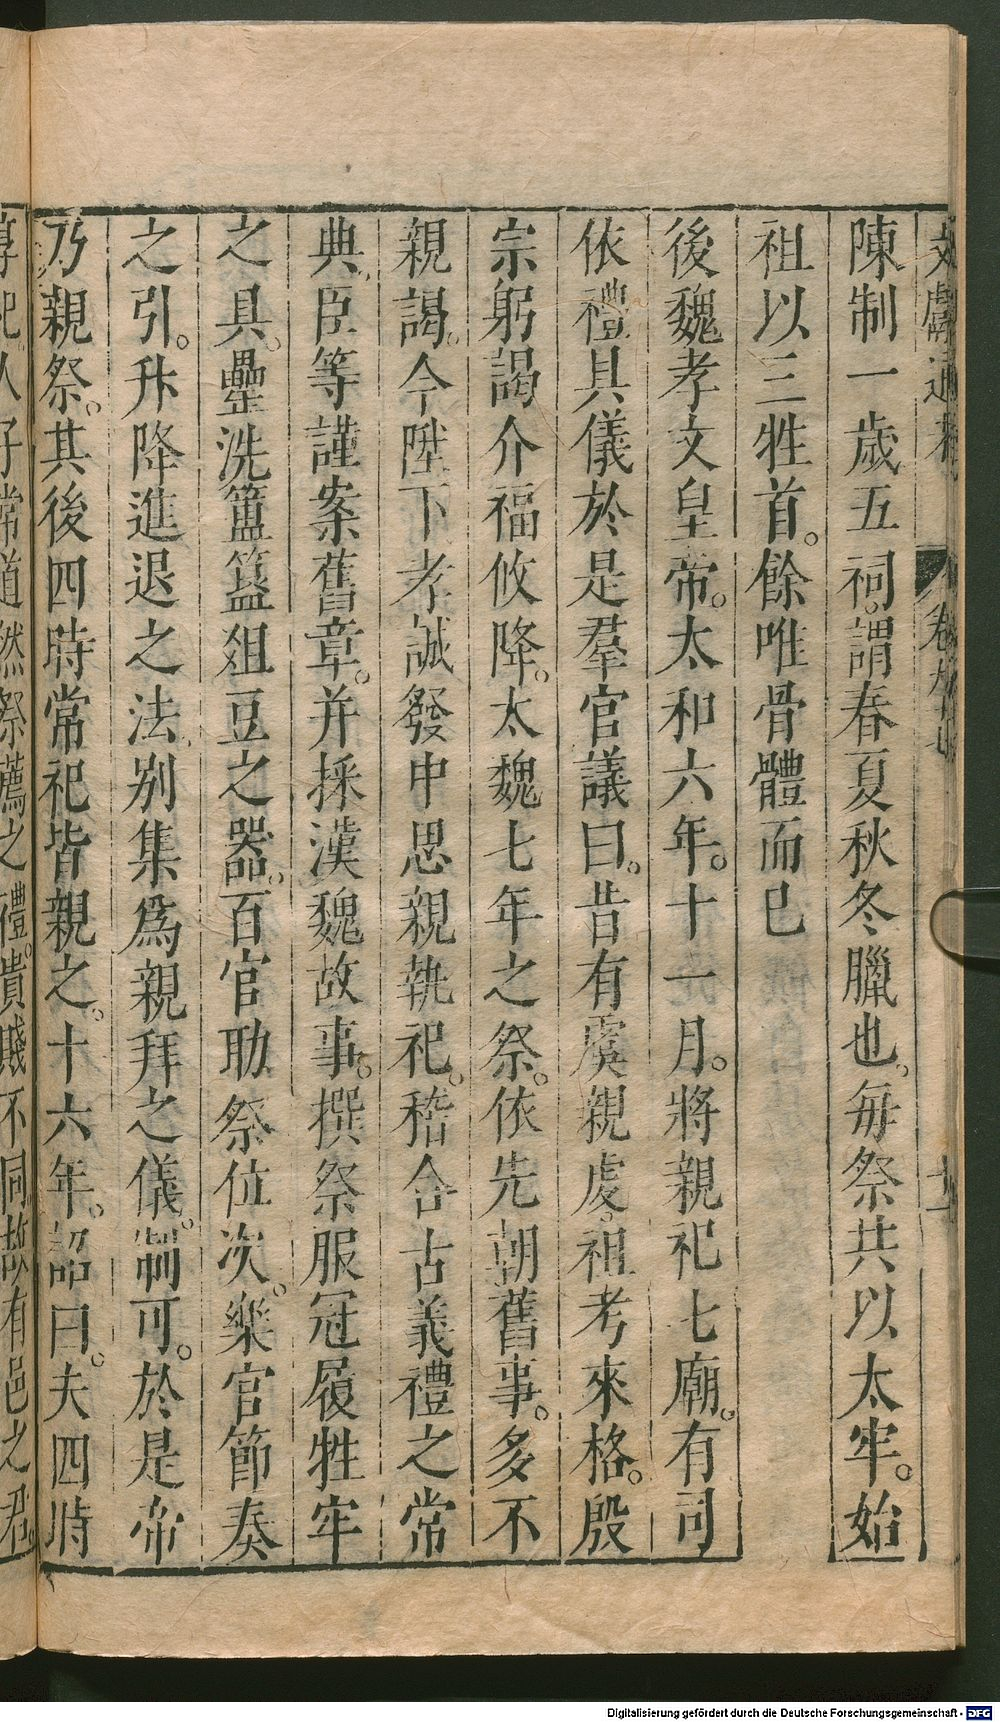 陳制一歲五祠。謂春夏秋冬臘也。每祭共以太牢。始
祖以三牲首。餘唯骨體而已
後魏孝文皇帝。太和六年。十一月。將親祀七廟。有司
依禮具儀於是羣官議曰。昔有虞親虔。祖考來格。殷
宗躬謁介福攸降。太魏七年之祭。依先朝舊事。多不
親謁。今陛下孝誠發中思親執祀。稽合古義禮之常
典。臣等謹案舊章。并採漢魏故事。撰祭服冠履牲牢
之具。罍洗簠簋俎豆之器。百官助祭位次。樂官節奏
之引。升降進退之法。別集爲親拜之儀。制可。於是帝
乃親祭。其後四時常祀皆親之。十六年。詔曰。夫四時
常道然祭薦之禮。貴賤不同。故有邑之君。
Digitalisierung gefördert durch die Deutsche Forschungsgemeinschaft - DFG